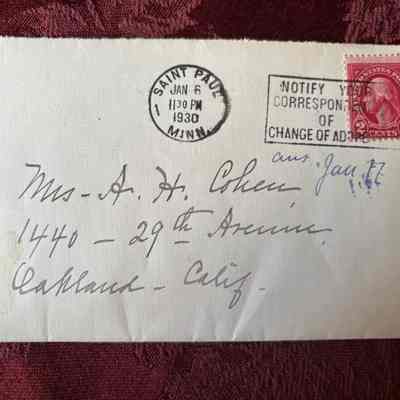 SAINT PAUL
1
JAN 6
11 30 PM
1930
MINN.
NOTIFY YOUR
CORRESPONDENTS
OF
CHANGE OF ADDRESS
ans. Jan 17
Mrs - A. H. Cohen
1440 - 29th Avenue.
Oakland - Calif -